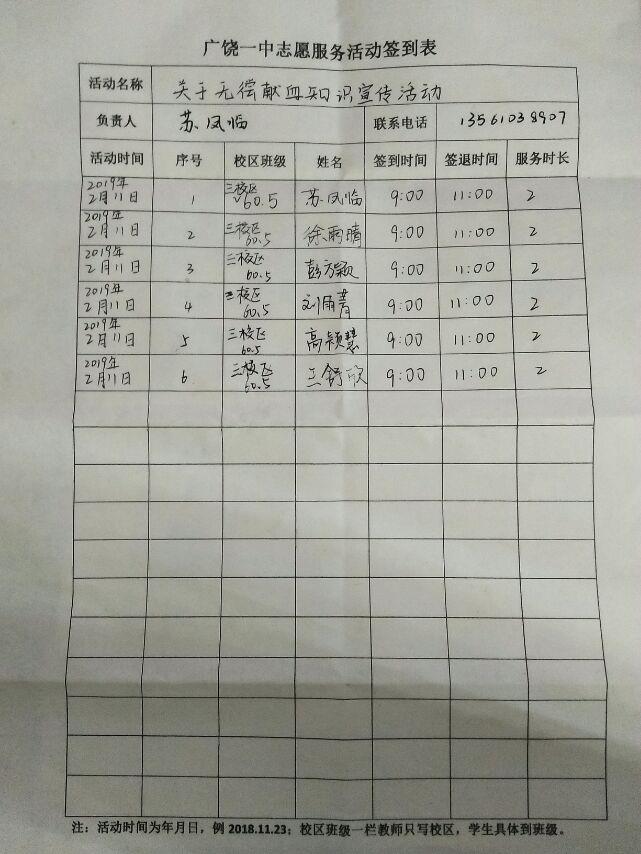 广饶一中志愿服务活动签到表
活动名称 关于无偿献血知识宣传活动
负责人 苏凤临 联系电话 13561038907
活动时间 序号 校区班级 姓名 签到时间 签退时间 服务时长
2019年2月11日 1 三校区60.5 苏凤临 9:00 11:00 2
2019年2月11日 2 三校区60.5 徐雨晴 9:00 11:00 2
2019年2月11日 3 三校区60.5 彭方颖 9:00 11:00 2
2019年2月11日 4 三校区60.5 刘雨菁 9:00 11:00 2
2019年2月11日 5 三校区60.5 高颖慧 9:00 11:00 2
2019年2月11日 6 三校区60.5 王舒欣 9:00 11:00 2
注：活动时间为年月日，例 2018.11.23；校区班级一栏教师只写校区，学生具体到班级。